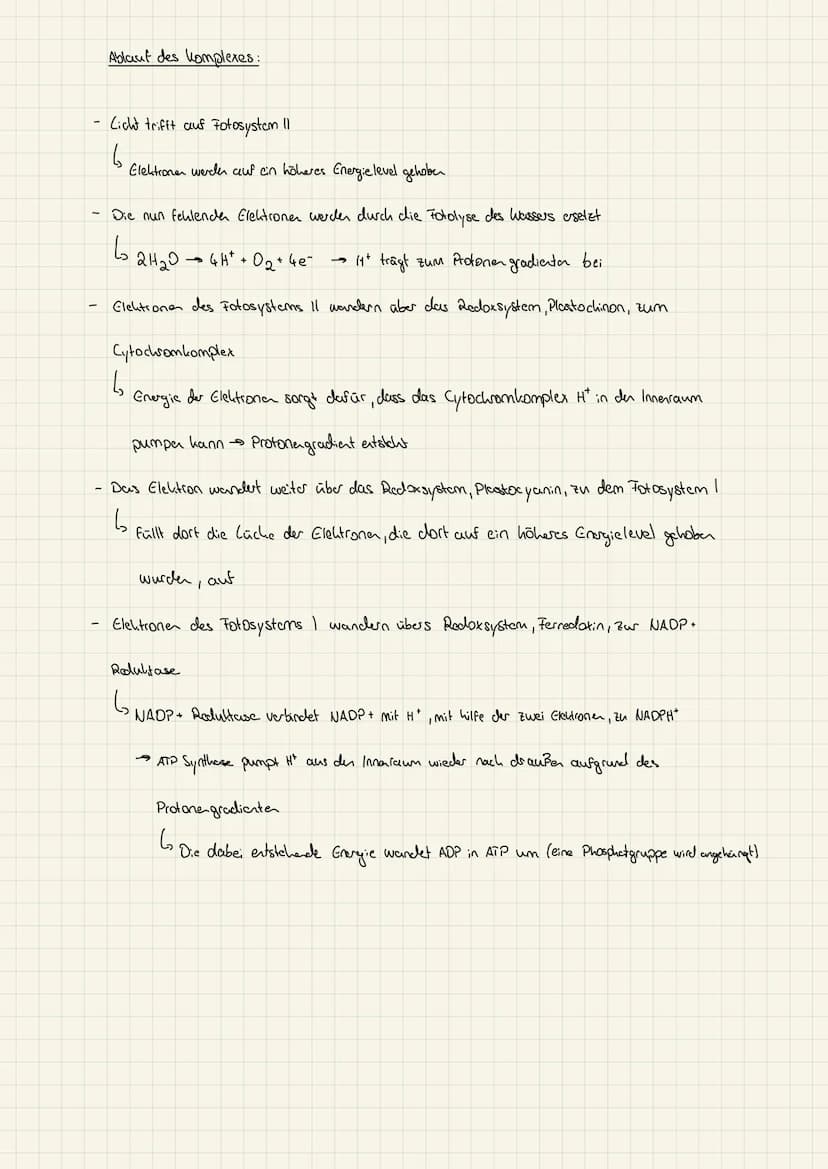 Ablauf des Komplexes:
- Licht trifft auf Fotosystem II
↳ Elektronen werden auf ein höheres Energielevel gehoben
- Die nun fehlenden Elektronen werden durch die Fotolyse des Wassers ersetzt
↳ 2H₂O → 4H⁺ + O₂ + 4e⁻ → H⁺ trägt zum Protonengradienten bei
- Elektronen des Fotosystems II wandern über das Redoxsystem, Plastochinon, zum
Cytochromkomplex
↳ Energie der Elektronen sorgt dafür, dass das Cytochromkomplex H⁺ in den Innenraum
pumpen kann → Protonengradient entsteht
- Das Elektron wandert weiter über das Redoxsystem, Plastocyanin, zu dem Fotosystem I
↳ Füllt dort die Lücke der Elektronen, die dort auf ein höheres Energielevel gehoben
wurden, auf
- Elektronen des Fotosystems I wandern übers Redoxsystem, Ferredoxin, zur NADP+
Reduktase
↳ NADP+ Reduktase verbindet NADP+ mit H⁺, mit hilfe der zwei Elektronen, zu NADPH⁺
→ ATP Synthase pumpt H⁺ aus den Innenraum wieder nach draußen aufgrund des
Protonengradienten
↳ Die dabei entstehende Energie wandelt ADP in ATP um (eine Phosphatgruppe wird angehängt)